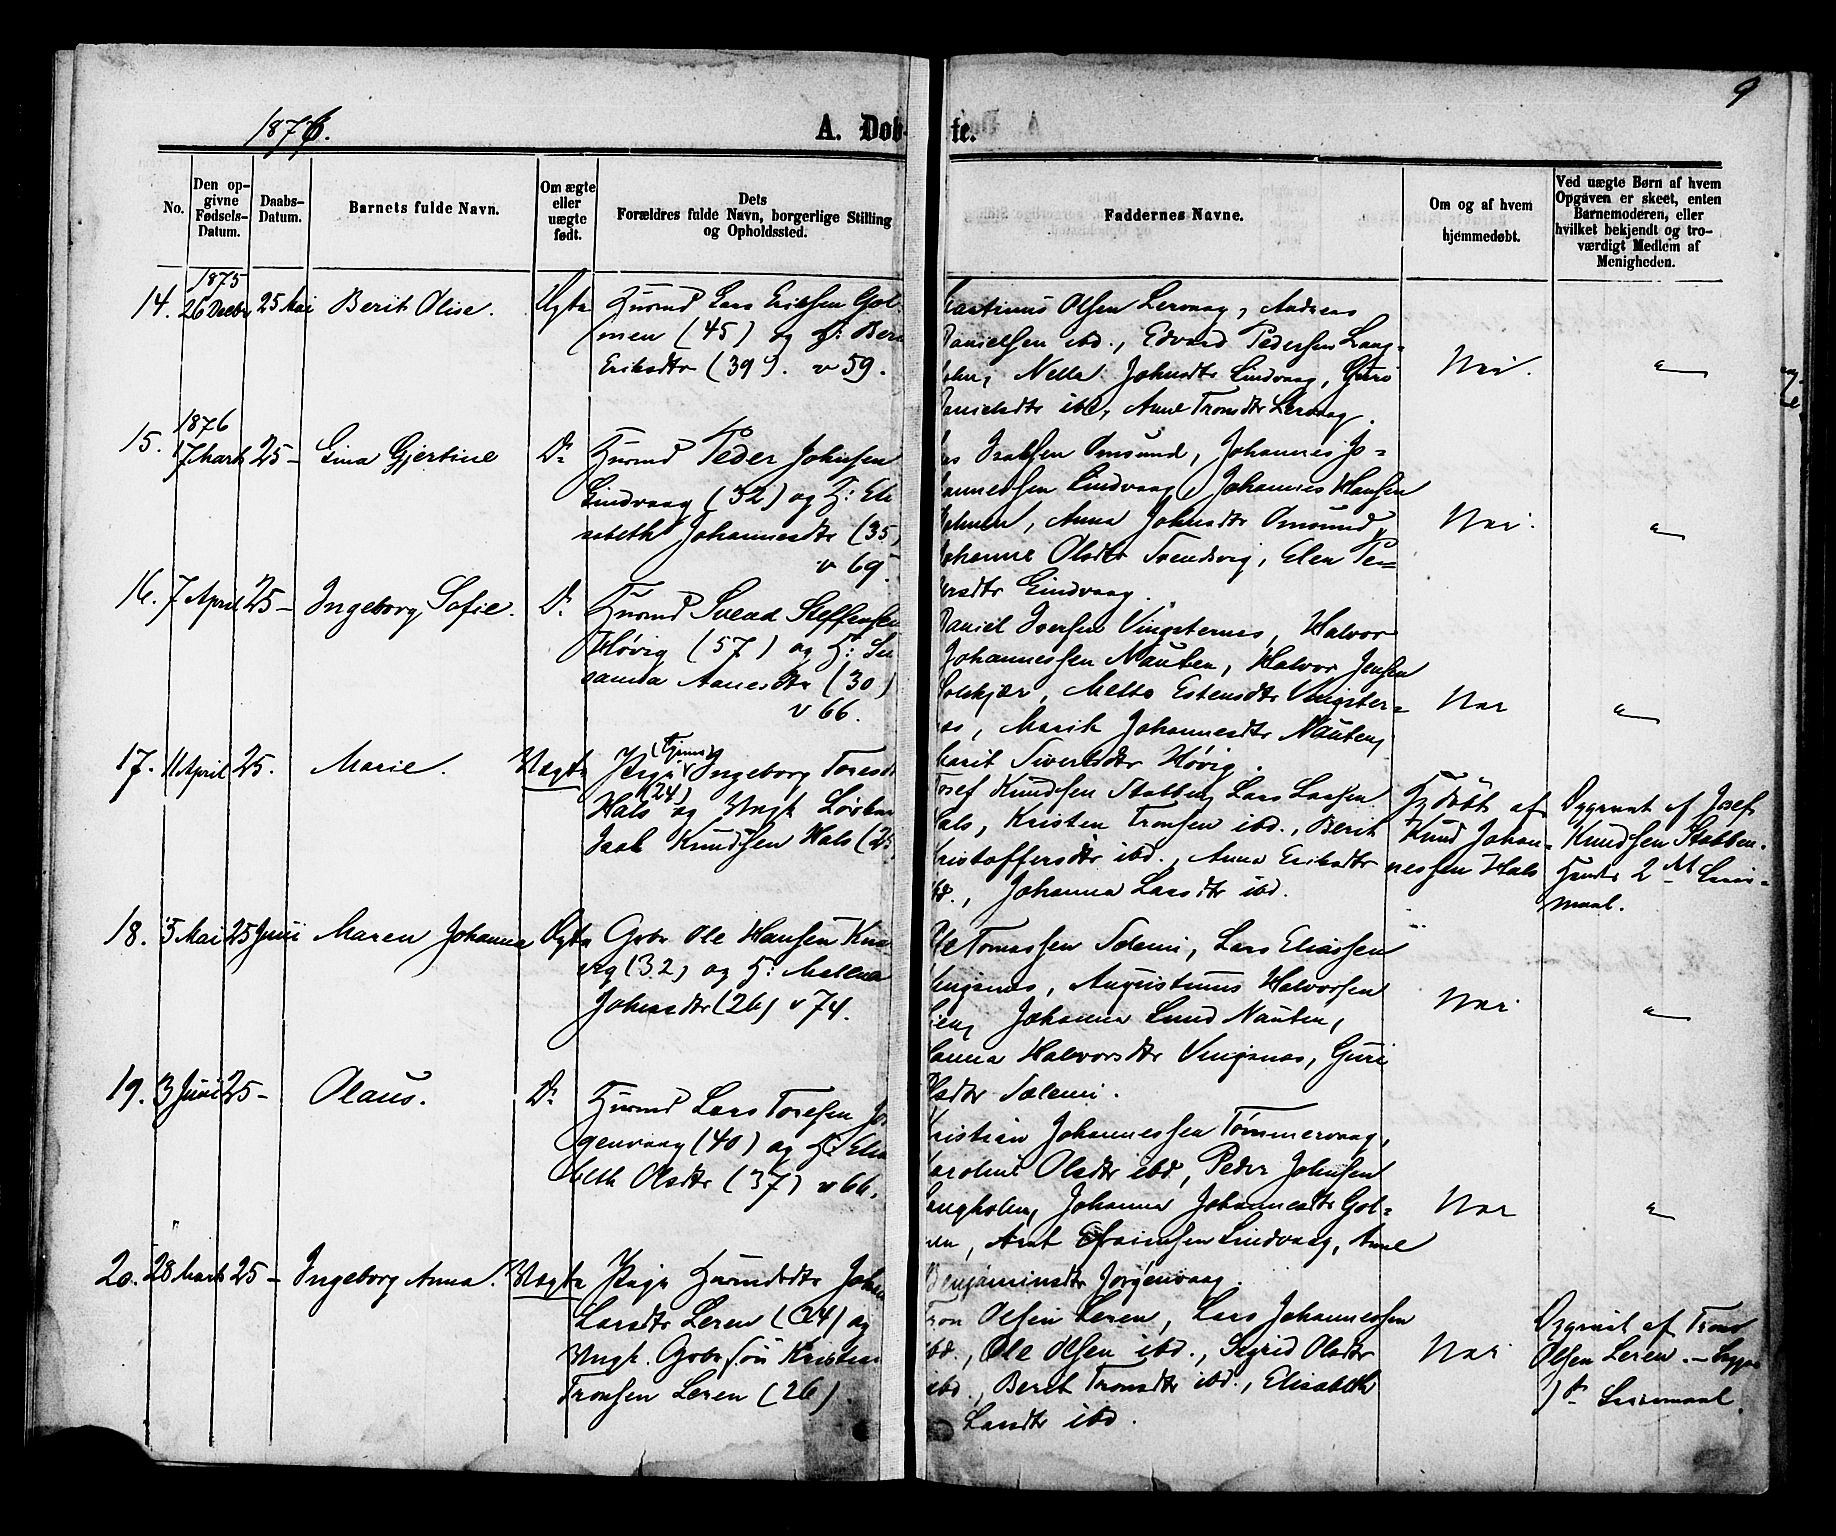 9
1876.
A. Døb-
te.
No.
Den op-
givne
Fødsels-
Datum.
Daabs-
Datum.
Barnets fulde Navn.
Om ægte
eller
uægte
født.
Dets
Forældres fulde Navn, borgerlige Stilling
og Opholdssted.
Faddernes Navne.
Om og af hvem
hjemmedøbt.
Ved uægte Børn af hvem
Opgaven er skeet, enten
Barnemoderen, eller
hvilket bekjendt og tro-
værdigt Medlem af
Menigheden.
1875
14. 26 Decbr 25 Mai Berit Olise. Ægte
Husmd Lars Eriksen Gol-
men (45) og H: Ber
Eriksdtr (39). v 59.
Olsen Lervaag, Andreas
Danielsen ibd., Edvard Pedersen Lang-
Nella Johnsdtr Lindvaag, Guri
Danielsdtr ibd, Anne Tronsdtr Lervaag.
Nei.
"
1876
15. 17 Marts 25 – Gina Gjertine Do
Husmd Peder Johnsen
Lindvaag (32) og H: Eli
sabeth Johannesdtr (35)
v 69.
Omsund, Johannes Jo-
hannessen Lindvaag, Johannes Hansen
Anna Johnsdtr Omsund,
Johanne Olsdtr Svendsvig, Elen Pe-
Lindvaag.
Nei.
"
16. 7 April 25 – Ingeborg Sofie. Do
Husmd Svend Steffensen
Høvig (57) og H: Su
sanna Aanesdtr (30)
v 66.
Daniel Iversen Vingsternes, Halvor
Johannessen Nauten, Halvor Jensen
Mette Estensdtr Vingster-
nes, Marit Johannesdtr Nauten,
Marit Siversdtr Høvig.
Nei
"
17. 11 April 25. Marie. Uægte
Pige Ingeborg Toresd
(24)
Hals og Ungk.
Isak Knudsen Hals
Josef Knudsen Stabben, Lars Larsen
Hals, Kristen Tronsen ibd., Berit
Kristoffersdtr ibd., Anna Eriksdtr
ibd., Johanna Larsdtr ibd.
Hjdøbt af
Knud Johan-
nessen Hals
Opgivet af Josef
Knudsen Stabben.
2
maal.
18. 5 Mai 25 Juni Maren Johanna Ægte
Gbr Ole Hansen
(32) og H: Mallena
Johnsdtr (26) v 74.
Ole Tomassen Solemi, Lars Eliassen
Vingsnes, Augustinus Halvorsen
Johanna Lund Nauten,
Hanna Halvorsdtr Vingsnes, Guri
Olsdtr Solemi.
Nei
"
19. 3 Juni 25 – Olaus. Do
Husmd Lars Toresen Jør
genvaag (40) og H: Elisa
beth Olsdtr (37) v 66.
Kristian Johannessen Tømmervaag,
Karoline Olsdtr ibd., Peder Johnsen
Langholm, Johanna Johannesdtr Gol-
men, Arnt Efraimsen Lindvaag, Anne
Benjaminsdtr Jørgenvaag.
Nei
"
20. 28 Marts 25 – Ingeborg Anna. Uægte
Pige Husmdsdtr Johan
Larsdtr Leren (24) og
Ungk. Gbrsøn Kristian
Tronsen Leren (26)
Tron Olsen Leren, Lars Johannessen
ibd., Ole Olsen ibd., Sigrid Olsdtr
ibd., Berit Tronsdtr ibd., Elisabeth
Larsdtr ibd.
Nei
Opgivet af Tron
Olsen Leren.